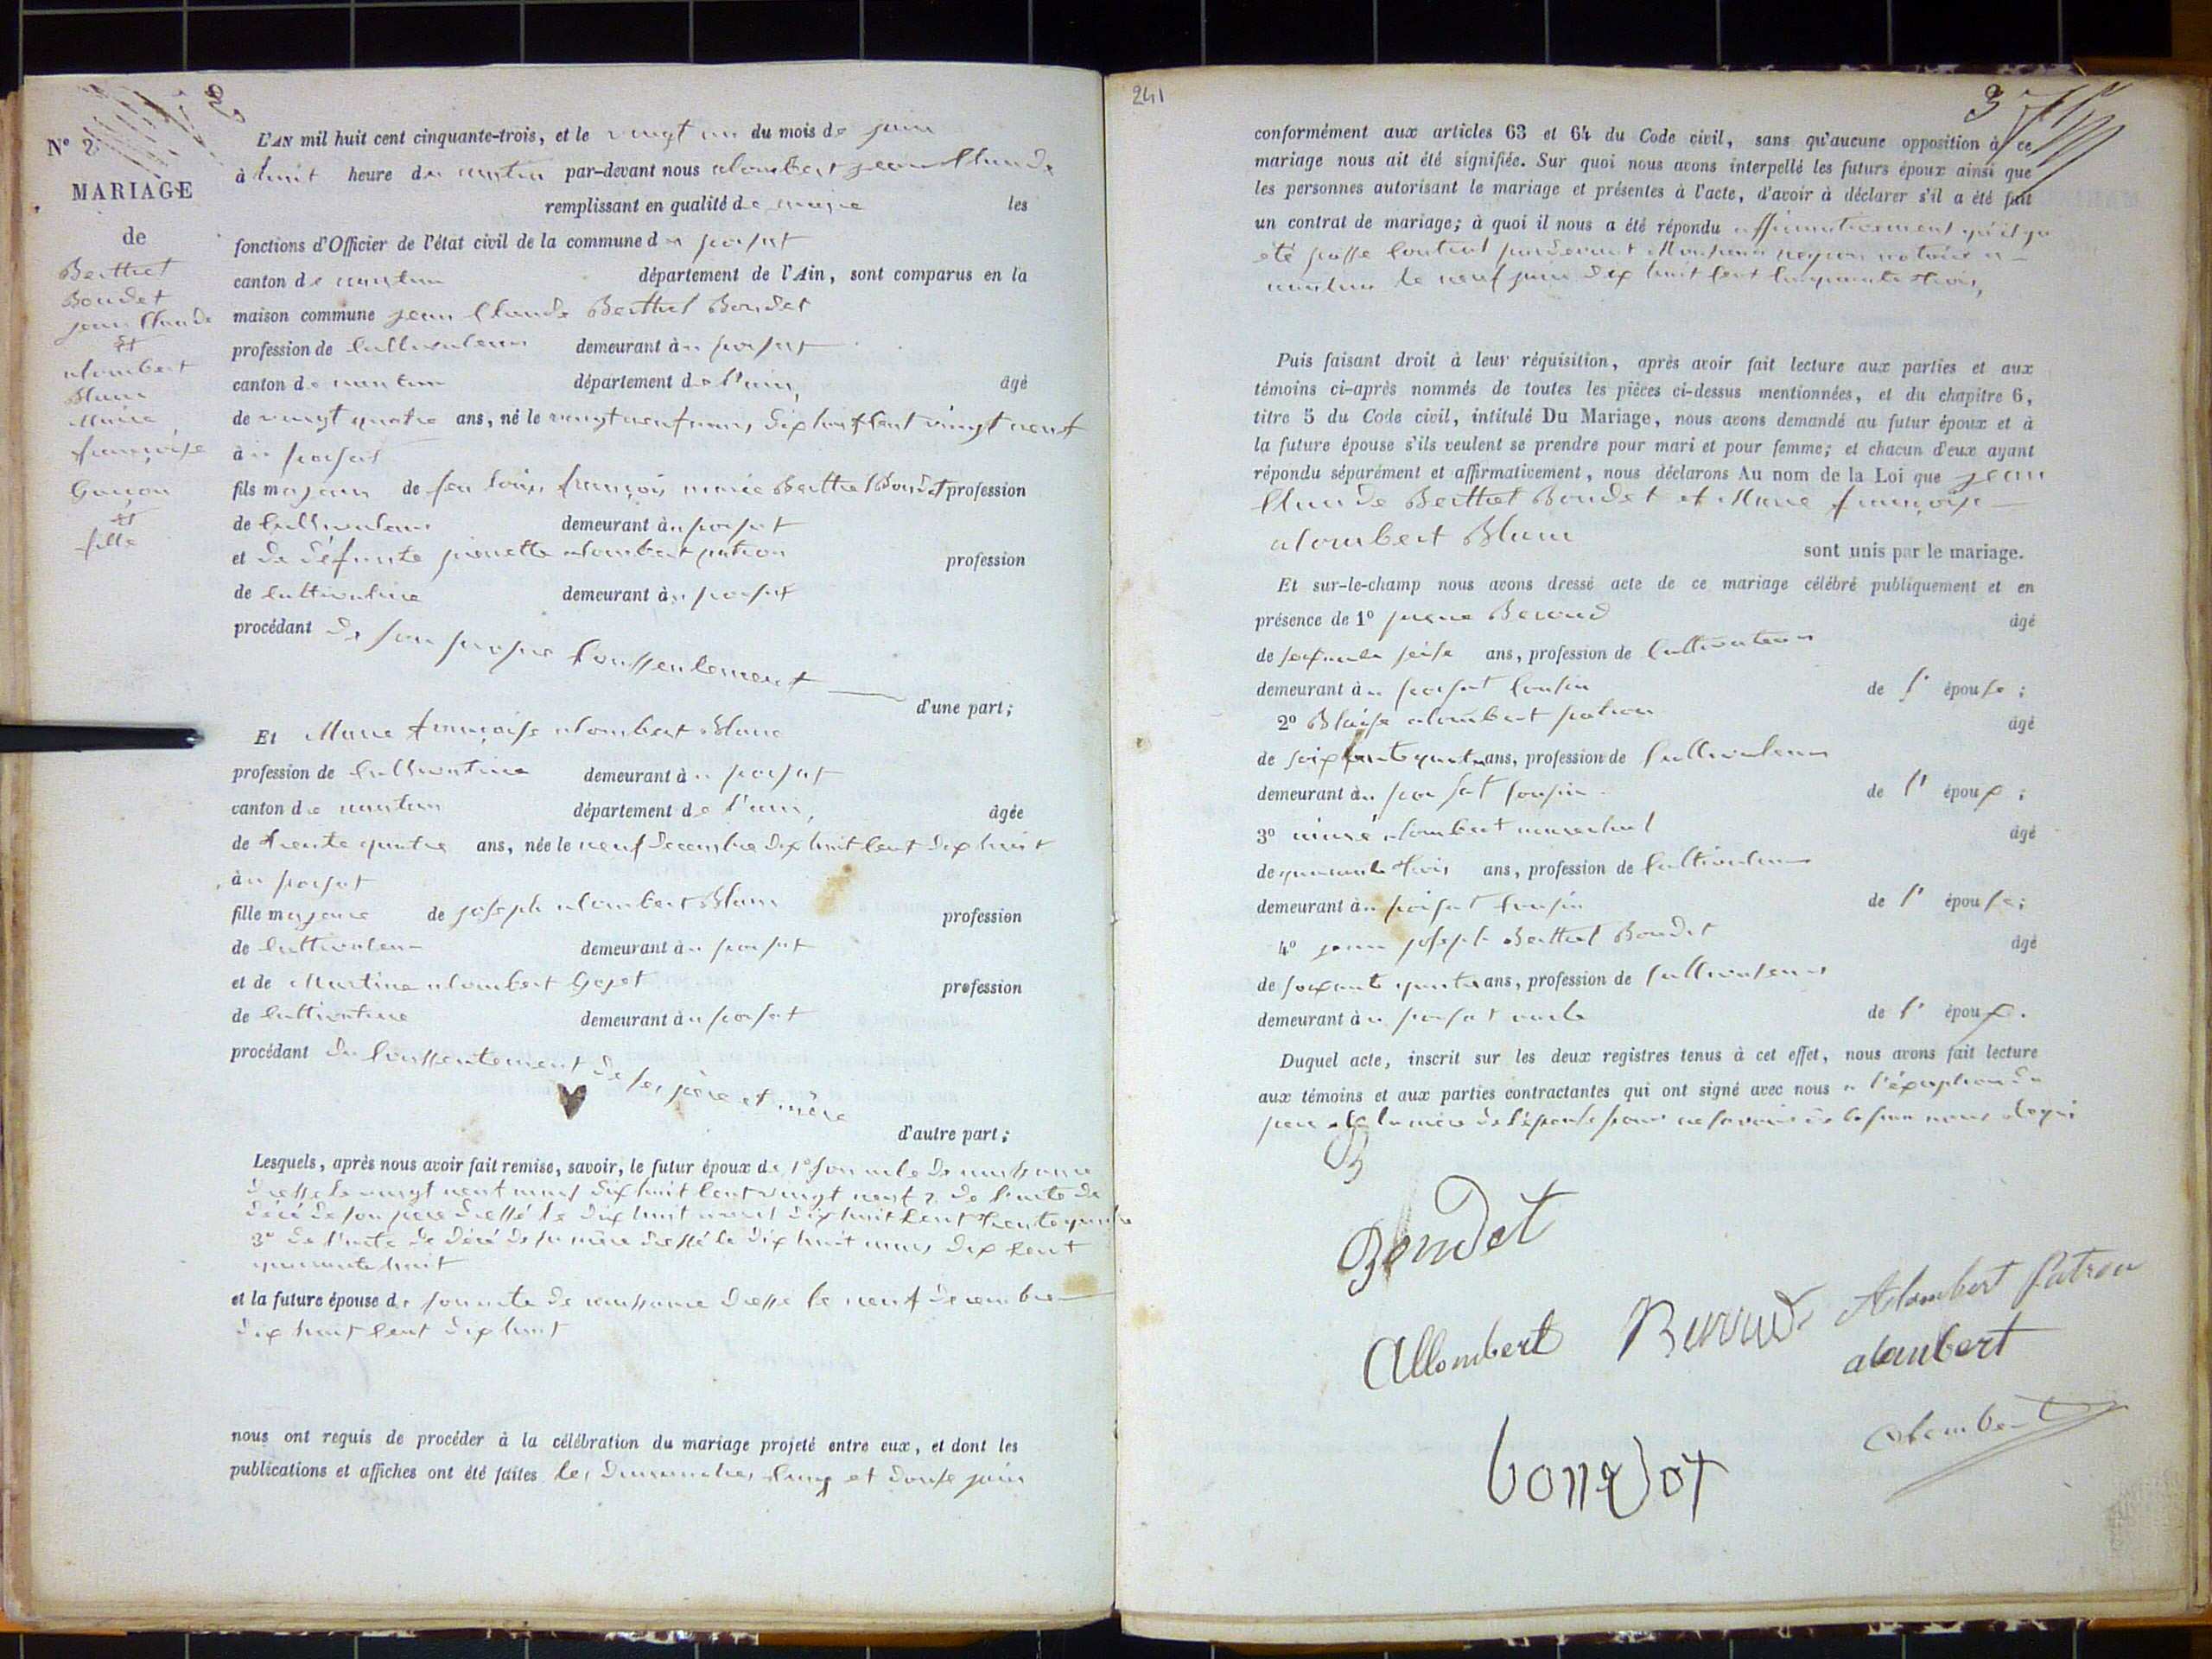 2
N° 2
MARIAGE
de
Berthet
Boudet
jean Claude
et
alombert
Blanc
Marie
françoise
Garçon
et
fille
L'AN mil huit cent cinquante-trois, et le vingt un du mois de juin
à huit heure du matin par-devant nous alombert jean Claude
remplissant en qualité de maire les
fonctions d'Officier de l'état civil de la commune de
canton de nantua département de l'Ain, sont comparus en la
maison commune jean Claude Berthet Boudet
profession de Cultivateur demeurant à
canton de nantua département de l'ain, âgé
de vingt quatre ans, né le vingt neuf mars dix huit Cent vingt neuf
à
fils majeur de feu Louis françois marie Berthet Boudet profession
de Cultivateur demeurant à
et de défunte pierrette alombert patron profession
de Cultivatrice demeurant à
procédant de son propre Conssentement
d'une part;
Et Marie françoise alombert Blanc
profession de Cultivatrice demeurant à
canton de nantua département de l'ain, âgée
de trente quatre ans, née le neuf decembre dix huit Cent dix huit
à
fille majeure de joseph alombert Blanc profession
de Cultivateur demeurant à
et de Martine alombert Goget profession
de Cultivatrice demeurant à
procédant du Conssentement de ses père et mère
d'autre part;
Lesquels, après nous avoir fait remise, savoir, le futur époux de 1° son acte de naissance
dressé le vingt neuf mars dix huit Cent vingt neuf 2° de l'acte de
décé de son père dressé le dix huit dix huit Cent trente quatre
3° de l'acte de décé de sa mère dressé le dix huit mars dix Cent
quarante huit
et la future épouse de son acte de naissance dressé le neuf decembre
dix huit Cent dix huit
nous ont requis de procéder à la célébration du mariage projeté entre eux, et dont les
publications et affiches ont été faites les dimanches Cinq et douse juin
241
3
conformément aux articles 63 et 64 du Code civil, sans qu'aucune opposition à ce
mariage nous ait été signifiée. Sur quoi nous avons interpellé les futurs époux ainsi que
les personnes autorisant le mariage et présentes à l'acte, d'avoir à déclarer s'il a été fait
un contrat de mariage; à quoi il nous a été répondu affirmativement qu'il y a
été passé Contrat pardevant notaire a
nantua le neuf juin dix huit Cent Cinquante trois,
Puis faisant droit à leur réquisition, après avoir fait lecture aux parties et aux
témoins ci-après nommés de toutes les pièces ci-dessus mentionnées, et du chapitre 6,
titre 5 du Code civil, intitulé Du Mariage, nous avons demandé au futur époux et à
la future épouse s'ils veulent se prendre pour mari et pour femme; et chacun d'eux ayant
répondu séparément et affirmativement, nous déclarons Au nom de la Loi que jean
Claude Berthet Boudet et Marie françoise
alombert Blanc
sont unis par le mariage.
Et sur-le-champ nous avons dressé acte de ce mariage célébré publiquement et en
présence de 1° Beroud âgé
de seise ans, profession de Cultivateur
demeurant à Cousin de l' épouse;
2° Blaise alombert patron âgé
de soixante quatre ans, profession de Cultivateur
demeurant à Cousin de l' époux;
3° aimé alombert marechal âgé
de quarante trois ans, profession de Cultivateur
demeurant à Cousin de l' épouse;
4° jean joseph Berthet Boudet âgé
de soixante quatre ans, profession de Cultivateur
demeurant à oncle de l' époux.
Duquel acte, inscrit sur les deux registres tenus à cet effet, nous avons fait lecture
aux témoins et aux parties contractantes qui ont signé avec nous a l'éxception du
père et la mère de l'épouse pour ne savoir
Boudet
Allombert Alombert Patron
alaubert
bonedot
Alombert